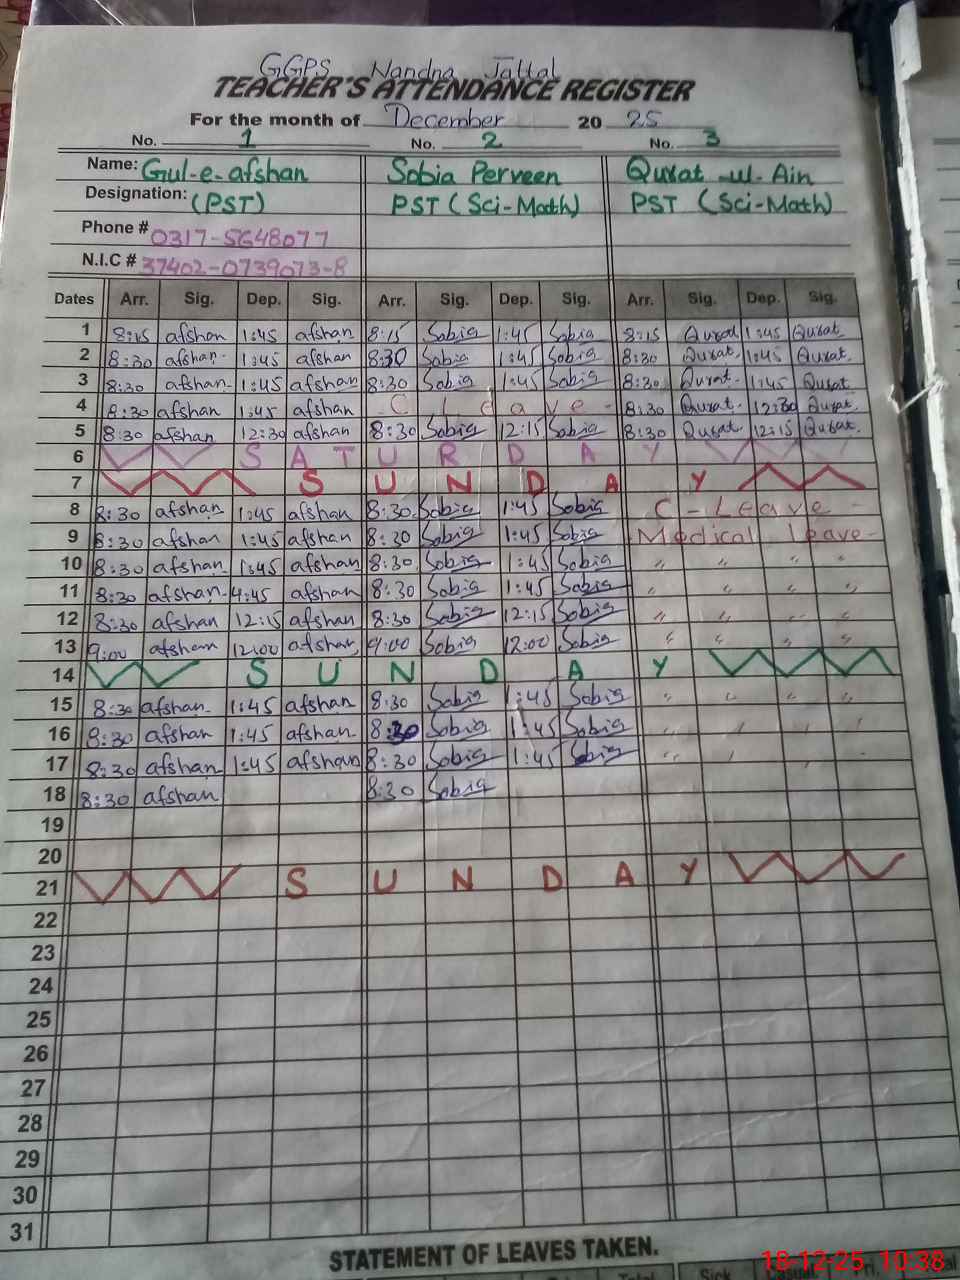 GGPS Nandna Jattal
TEACHER'S ATTENDANCE REGISTER
For the month of December 20 25
No. 1 No. 2 No. 3
Name: Gul-e-afshan Sobia Perveen Qurat-ul-Ain
Designation: (PST) PST (Sci-Math) PST (Sci-Math)
Phone # 0317-5648077
N.I.C # 37402-0739073-8
Dates Arr. Sig. Dep. Sig. Arr. Sig. Dep. Sig. Arr. Sig. Dep. Sig.
1 8:15 afshan 1:45 afshan 8:15 Sobia 1:45 Sobia 8:15 Qurat 1:45 Qurat
2 8:30 afshan 1:45 afshan 8:30 Sobia 1:45 Sobia 8:30 Qurat 1:45 Qurat
3 8:30 afshan 1:45 afshan 8:30 Sobia 1:45 Sobia 8:30 Qurat 1:45 Qurat
4 8:30 afshan 1:45 afshan C Leave - 8:30 Qurat 12:30 Qurat
5 8:30 afshan 12:30 afshan 8:30 Sobia 12:15 Sobia 8:30 Qurat 12:15 Qurat
6 SATURDAY
7 SUNDAY
8 8:30 afshan 1:45 afshan 8:30 Sobia 1:45 Sobia C - Leave -
9 8:30 afshan 1:45 afshan 8:30 Sobia 1:45 Sobia Medical leave -
10 8:30 afshan 1:45 afshan 8:30 Sobia 1:45 Sobia " " " "
11 8:30 afshan 4:45 afshan 8:30 Sobia 1:45 Sobia " " " "
12 8:30 afshan 12:15 afshan 8:30 Sobia 12:15 Sobia " " " "
13 9:00 afshan 12:00 afshan 9:00 Sobia 12:00 Sobia " " " "
14 SUNDAY
15 8:30 afshan 1:45 afshan 8:30 Sobia 1:45 Sobia " " " "
16 8:30 afshan 1:45 afshan 8:30 Sobia 1:45 Sobia " " " "
17 8:30 afshan 1:45 afshan 8:30 Sobia 1:45 Sobia " "
18 8:30 afshan 8:30 Sobia
19
20
21 SUNDAY
22
23
24
25
26
27
28
29
30
31
STATEMENT OF LEAVES TAKEN.
18-12-25 10:38
Total Sick